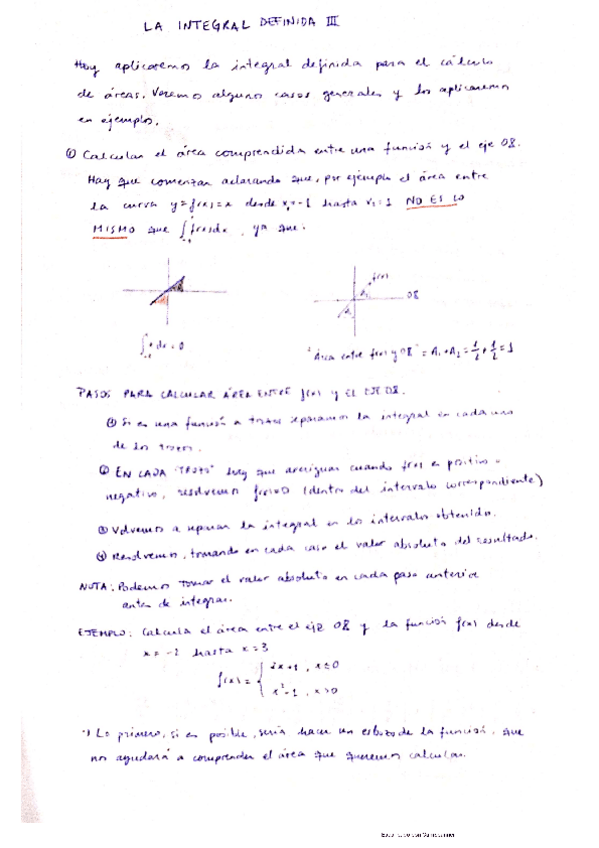 LA INTEGRAL DEFINIDA III
Hoy aplicaremos la integral definida para el cálculo
de áreas. Veremos algunos casos generales y los aplicaremos
en ejemplos.
① Calcular el área comprendida entre una función y el eje OX.
Hay que comenzar aclarando que, por ejemplo el área entre
la curva y=f(x)=x desde x₁=-1 hasta x₂=1 NO ES LO
MISMO que ∫₋₁¹ f(x)dx, ya que:
f(x)
OX
A₂
A₁
∫₋₁¹ x dx = 0
"Área entre f(x) y OX" = A₁+A₂ = 1/2 + 1/2 = 1
PASOS PARA CALCULAR ÁREA ENTRE f(x) Y EL EJE OX.
① Si es una función a trozos separamos la integral en cada uno
de los trozos.
② EN CADA "TROZO" hay que averiguar cuando f(x) es positivo o
negativo, resolvemos f(x)=0 (dentro del intervalo correspondiente)
③ Volvemos a separar la integral en los intervalos obtenidos.
④ Resolvemos, tomando en cada caso el valor absoluto del resultado.
NOTA: Podemos tomar el valor absoluto en cada paso anterior
antes de integrar.
EJEMPLO: Calcula el área entre el eje OX y la función f(x) desde
x = -2 hasta x = 3
f(x) = { 2x+1, x≤0
x²-1, x>0
Lo primero, si es posible, sería hacer un esbozo de la función, que
nos ayudará a comprender el área que queremos calcular.